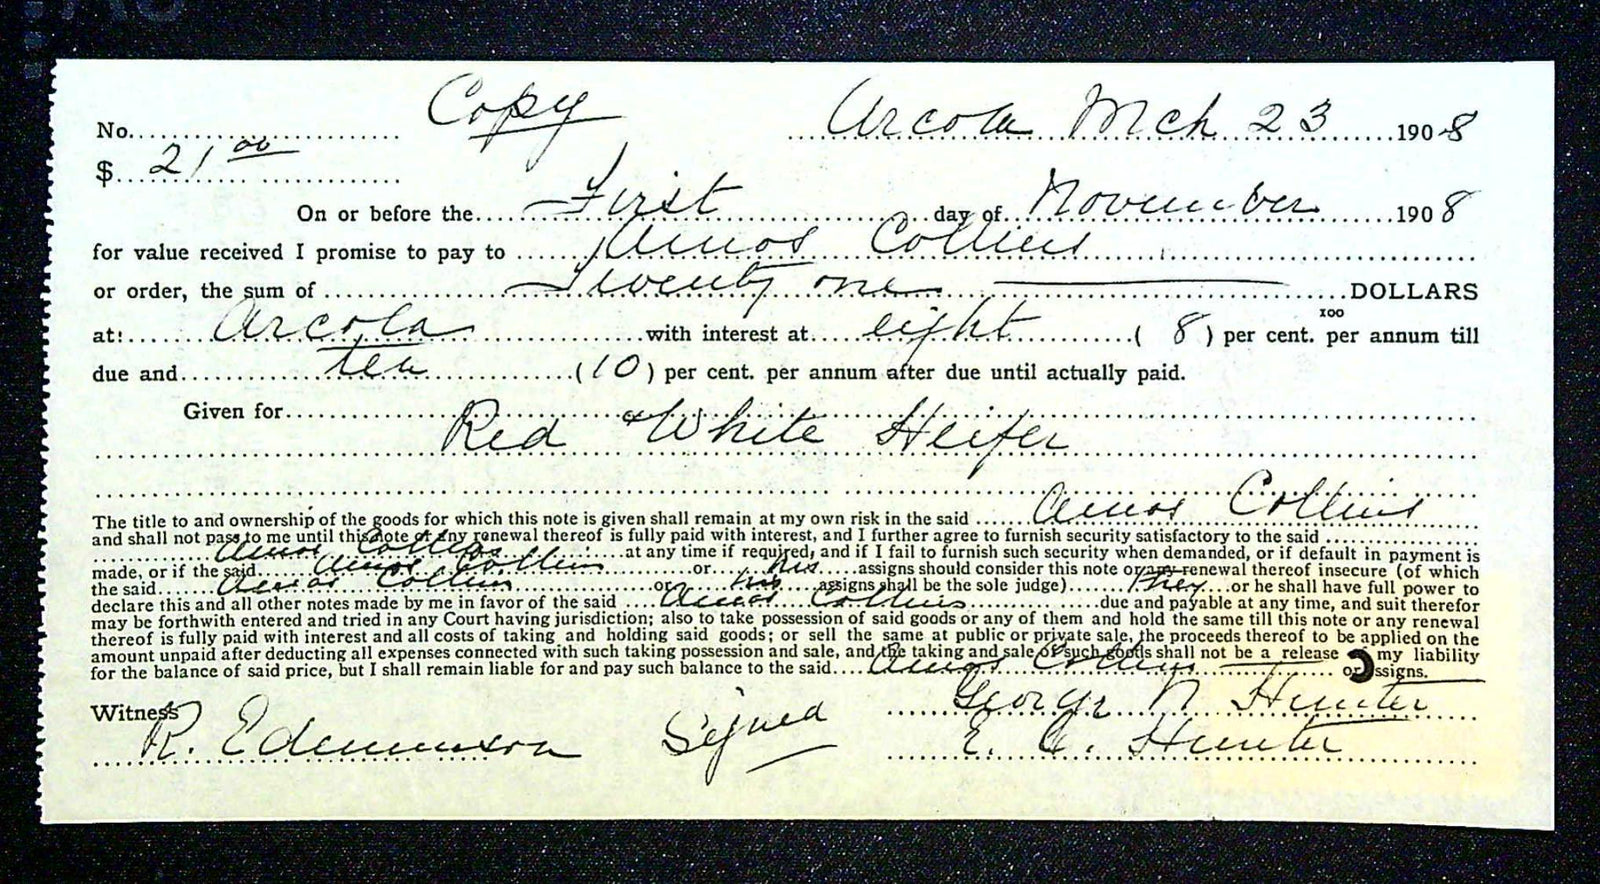 Copy
No. Arcola Mch 23 1908
$ 21 00
On or before the First day of November 1908
for value received I promise to pay to Amos Collins
or order, the sum of Twenty one DOLLARS
at: Arcola with interest at eight (8) per cent. per annum till
due and ten (10) per cent. per annum after due until actually paid.
Given for
Red & White Heifer
The title to and ownership of the goods for which this note is given shall remain at my own risk in the said Amos Collins
and shall not pass to me until this note or any renewal thereof is fully paid with interest, and I further agree to furnish security satisfactory to the said
Amos Collins at any time if required, and if I fail to furnish such security when demanded, or if default in payment is
made, or if the said Amos Collins or his assigns should consider this note or any renewal thereof insecure (of which
the said Amos Collins or his assigns shall be the sole judge) they or he shall have full power to
declare this and all other notes made by me in favor of the said Amos Collins due and payable at any time, and suit therefor
may be forthwith entered and tried in any Court having jurisdiction; also to take possession of said goods or any of them and hold the same till this note or any renewal
thereof is fully paid with interest and all costs of taking and holding said goods; or sell the same at public or private sale, the proceeds thereof to be applied on the
amount unpaid after deducting all expenses connected with such taking possession and sale, and the taking and sale of such goods shall not be a release my liability
for the balance of said price, but I shall remain liable for and pay such balance to the said Amos Collins or assigns.
Witness George N Hunter
R. Edmunson Signed E. C. Hunter